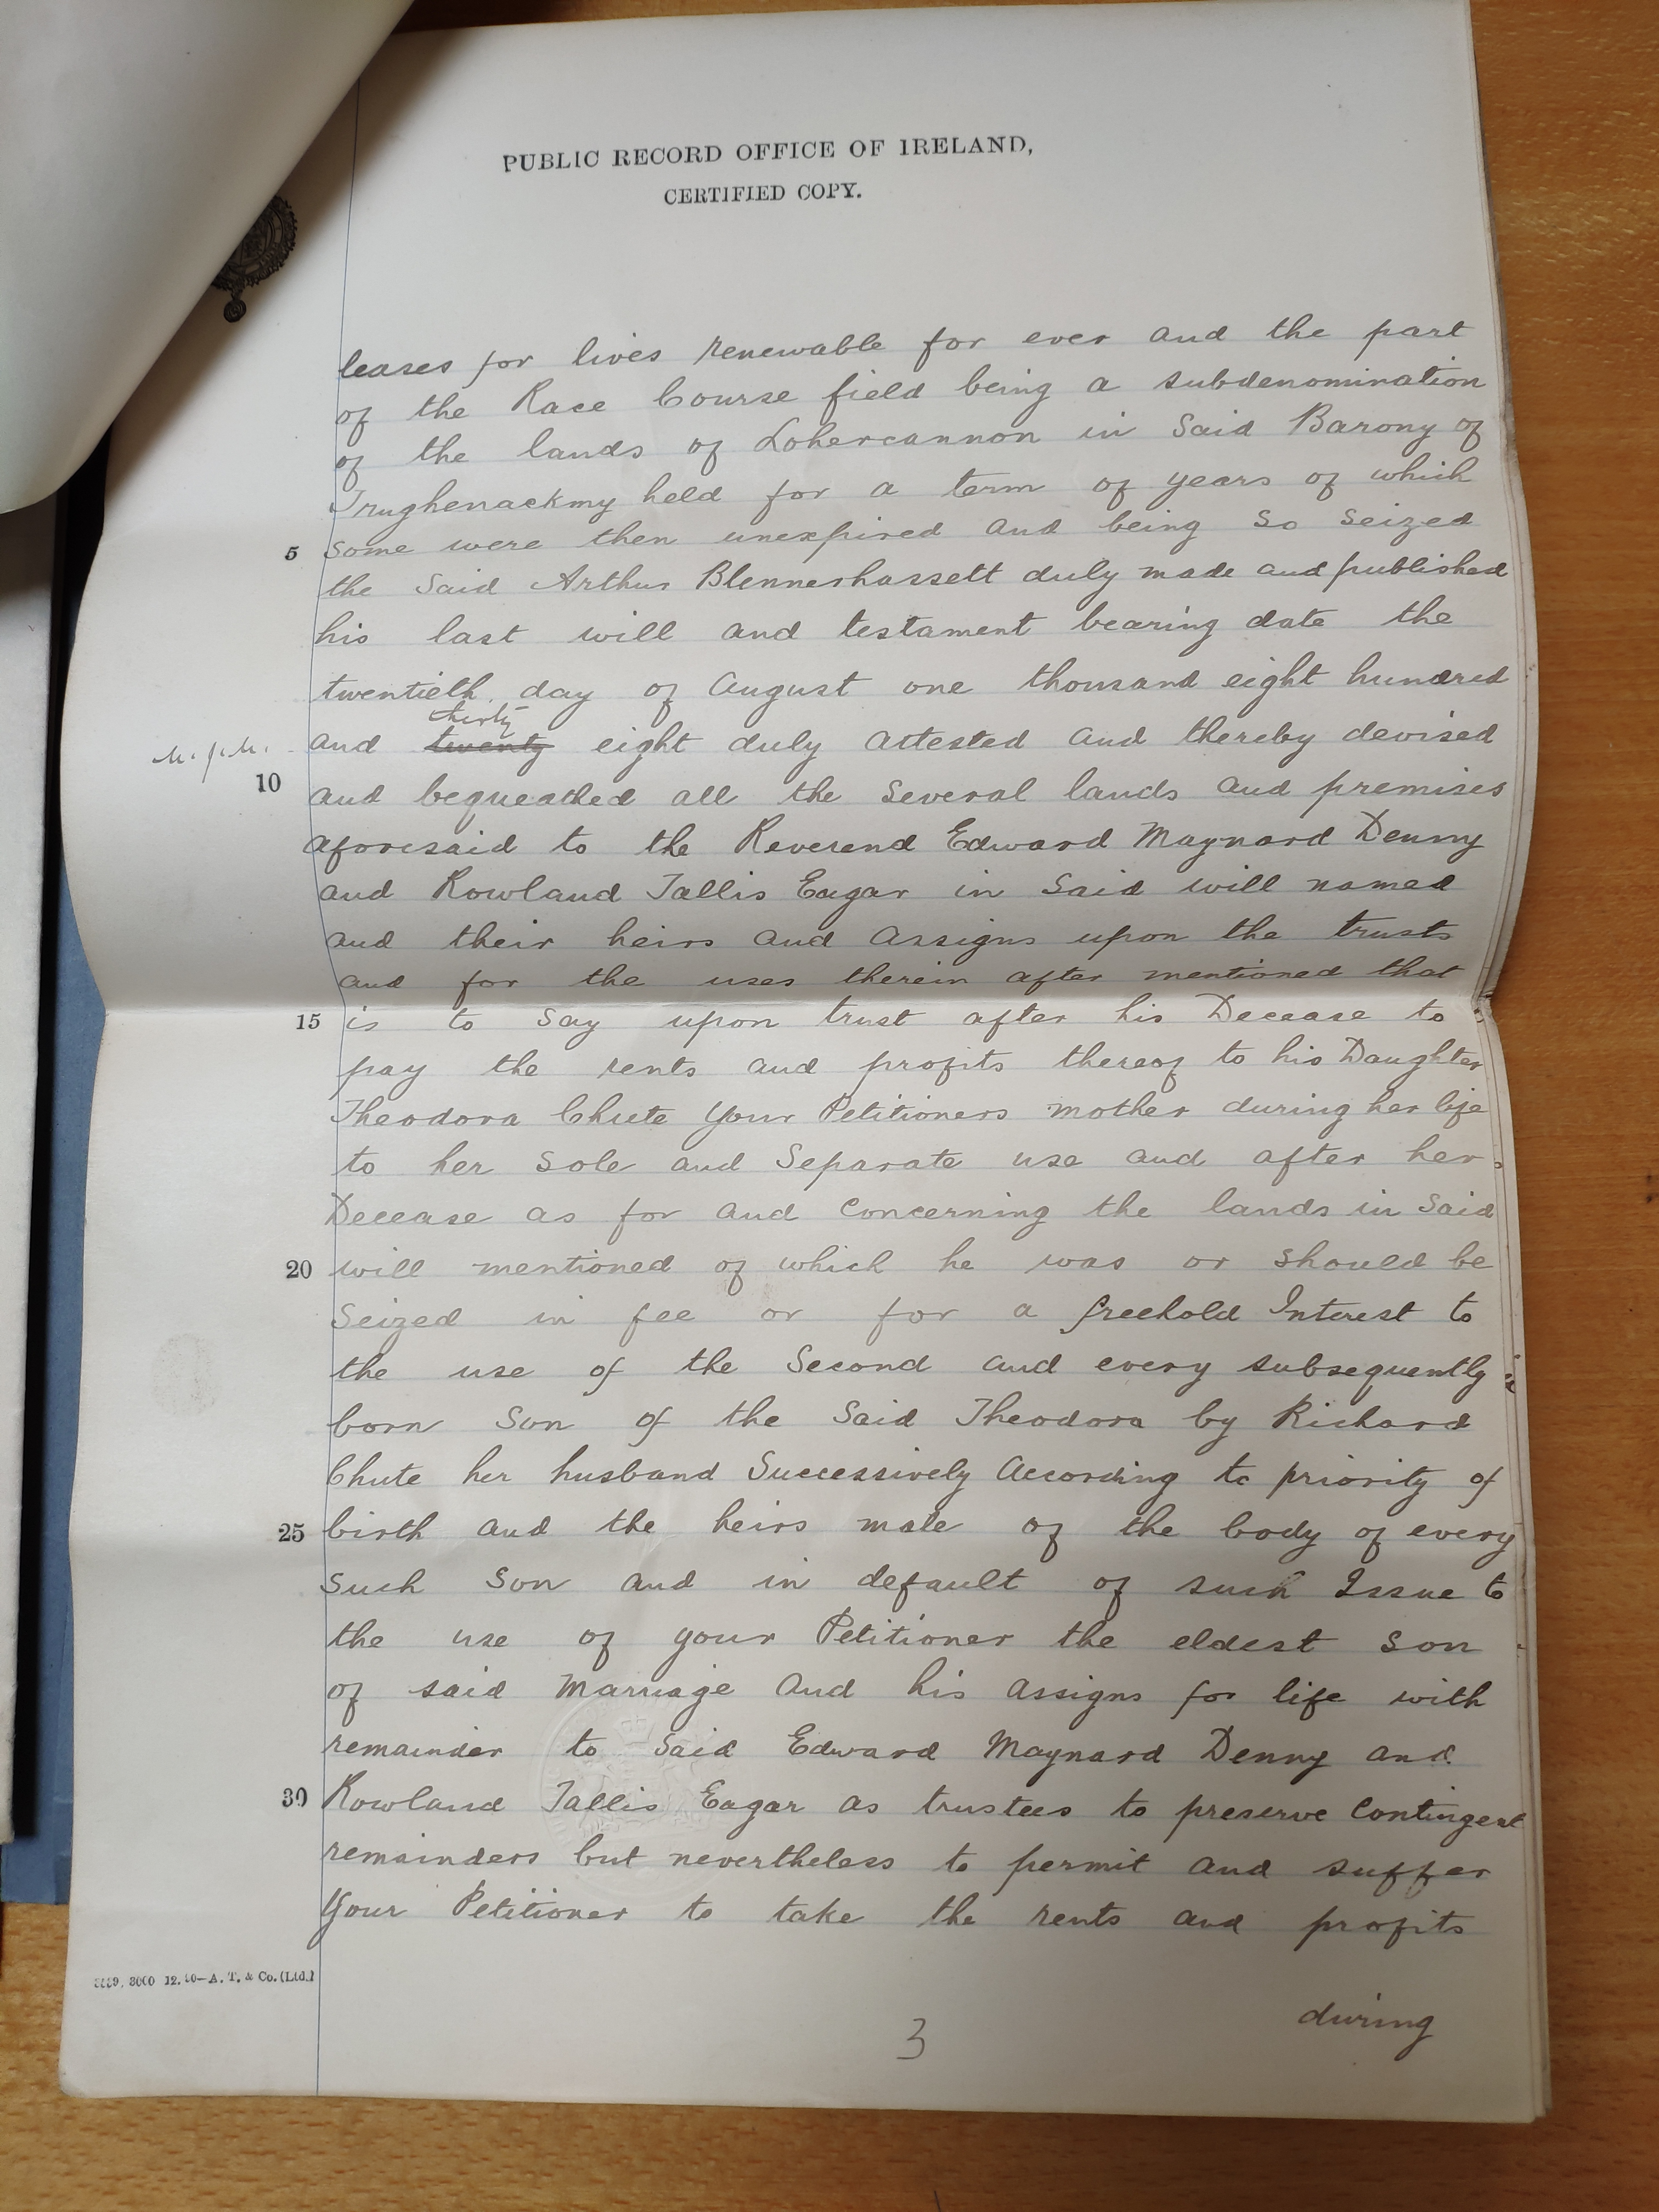 PUBLIC RECORD OFFICE OF IRELAND,
CERTIFIED COPY.
leases for lives renewable for ever and the part
of the Race Course field being a subdenomination
of the lands of Lohercannon in Said Barony of
Trughenackmy held for a term of years of which
5 some were then unexpired and being so seized
the Said Arthur Blennerhassett duly made and published
his last will and testament bearing date the
twentieth day of August one thousand eight hundred
thirty
and twenty eight duly attested and thereby devised
10 and bequeathed all the Several lands and premises
aforesaid to the Reverend Edward Maynard Denny
and Rowland Tallis Eagar in Said will named
and their heirs and assigns upon the trusts
and for the uses therein after mentioned that
15 is to Say upon trust after his Decease to
pay the rents and profits thereof to his Daughter
Theodora Chute Your Petitioners mother during her life
to her Sole and Separate use and after her
Decease as for and Concerning the lands in Said
20 will mentioned of which he was or should be
Seized in fee or for a freehold Interest to
the use of the Second and every subsequently
born Son of the Said Theodora by Richard
Chute her husband Successively According to priority of
25 birth and the heirs male of the body of every
such Son and in default of such Issue to
the use of your Petitioner the eldest son
of said Marriage and his assigns for life with
remainder to Said Edward Maynard Denny and
30 Rowland Tallis Eagar as trustees to preserve Contingent
remainders but nevertheless to permit and suffer
Your Petitioner to take the rents and profits
during
3
A. T. & Co. (Ltd.)